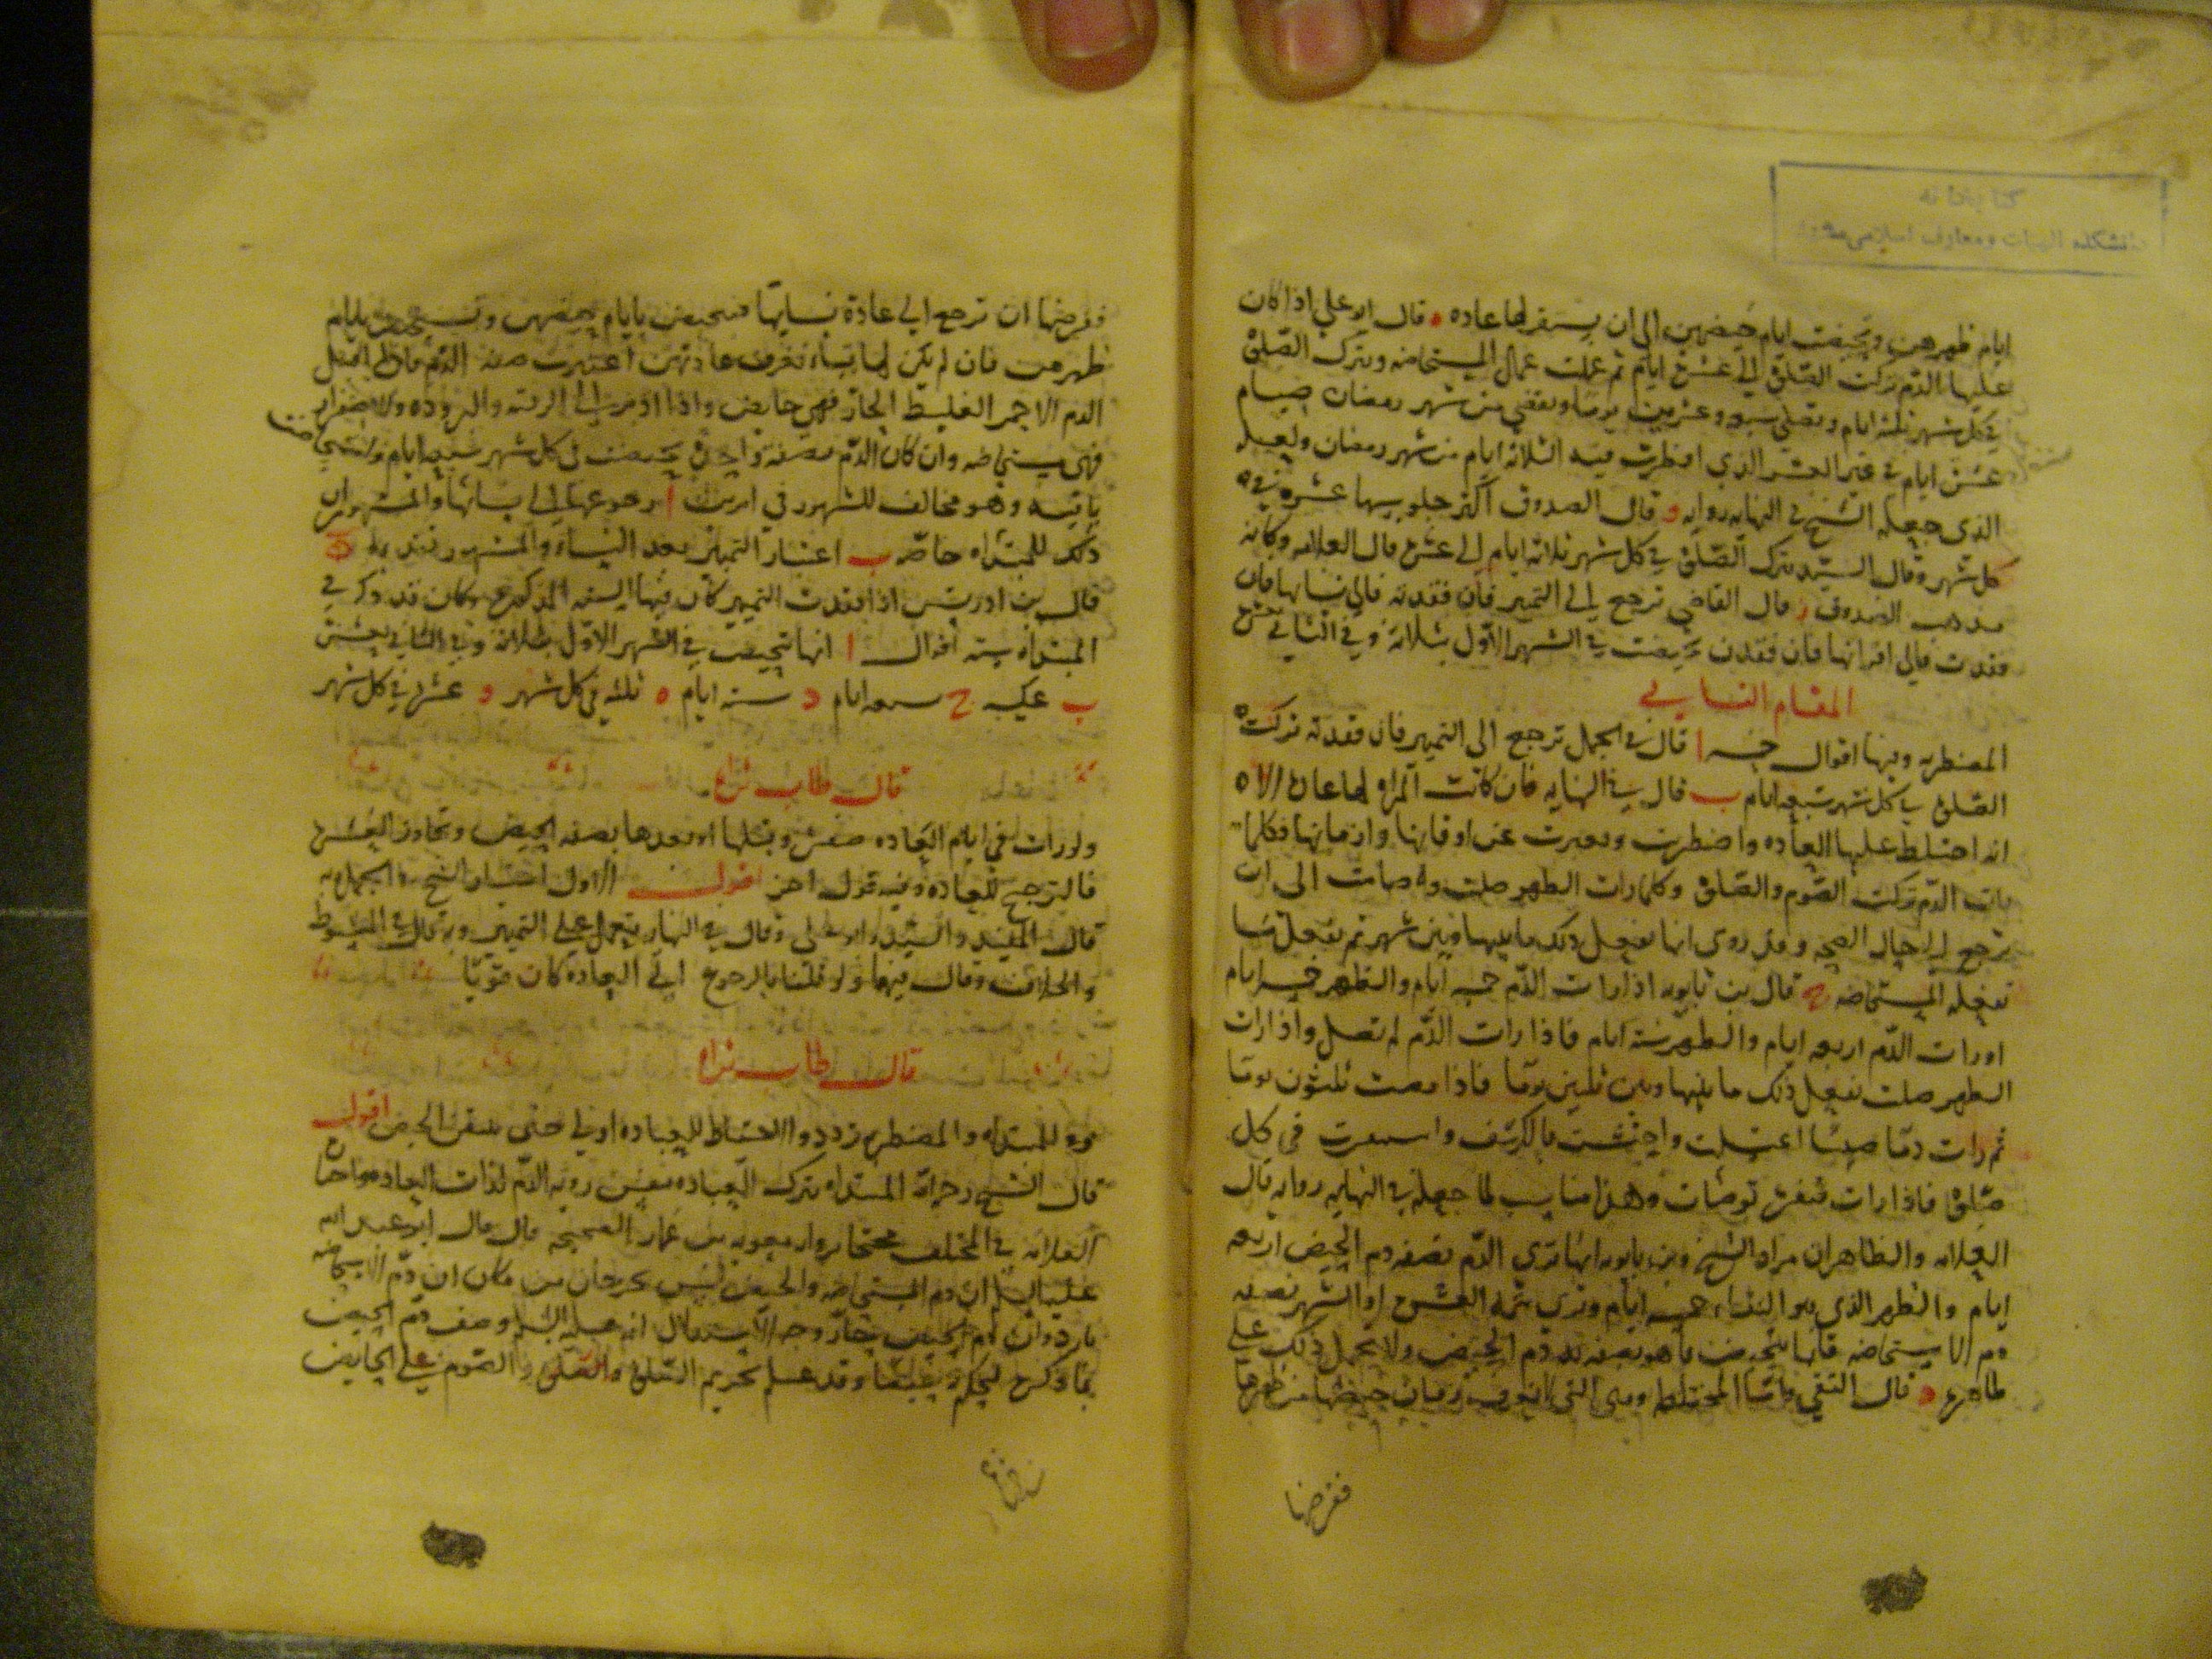 كتابخانه
دانشكده الهيات ومعارف اسلامى مشهد
ايام طهرهن وتحيضت ايام حيضهن الى ان يستقر لها عاده ه قال ابو علي اذا كان
عليها الدم تركت الصلوة الى عشرة ايام ثم عملت عمل المستحاضه وتترك الصلوة
في كل شهر ثلثة ايام وتصلي سبعه وعشرين يوما وتقضي من شهر رمضان صيام
عشرة ايام في غير العشر الذي افطرت فيه الثلاثة ايام من شهر رمضان ولعله
الذي جعله الشيخ في النهايه روايه و قال الصدوق اكثر جلوسها عشره في
كل شهر وقال السيد تترك الصلوة في كل شهر ثلاثة ايام الى عشرة قال العلامه وكانه
مذهب الصدوق ز قال القاضي ترجع الى التميز فان فقدته فالى نسائها فان
فقدت فالى اقرانها فان فقدن تحيضت في الشهر الاول بثلاثة وفي الثاني بعشرة
المقام الثاني
المضطربه وفيها اقوال خمسه ا قال في الجمل ترجع الى التميز فان فقدته تركت
الصلوة في كل شهر سبعه ايام ب قال في النهايه فان كانت المراه لها عادة الا
انه اختلط عليها العاده واضطربت وتغيرت عن اوقاتها وازمانها فكلما
رات الدم تركت الصوم والصلوة وكلما رات الطهر صلت وصامت الى ان
ترجع الى حال الصحه وقد روى انها تفعل ذلك ما بينها وبين شهر ثم تفعل ما
تفعله المستحاضه ج قال بن بابويه اذا رات الدم خمسه ايام والطهر خمسه ايام
او رات الدم اربعه ايام والطهر سته ايام فاذا رات الدم لم تصل واذا رات
الطهر صلت تفعل ذلك ما بينها وبين ثلثين يوما فاذا مضت ثلثون يوما
ثم رات دما صبيبا اغتسلت واحتشت بالكرسف واستثفرت في كل
صلوة فاذا رات صفرة توضات وهذا مناسب لما جعله في النهايه روايه قال
العلامه والظاهر ان مراد الشيخ وبن بابويه انها ترى الدم بصفه دم الحيض اربعه
ايام والطهر الذي هو النقاء خمسه ايام وترى تتمة العشرة او الشهر بصفه
دم الاستحاضه فانها تتحيض بما هو بصفه دم الحيض ولا يحمل ذلك على
ظاهره د قال التقي واما المختلطه وهي التي لا تعرف زمان حيضها من طهرها
ففرضها
ففرضها ان ترجع الى عادة نسائها فتحيض بايام حيضهن وتستحيض بايام
طهرهن فان لم يكن لها نساء تعرف عادتهن اعتبرت صفه الدم فاذا اقبل
الدم الاحمر الغليظ الحار فهي حايض واذا ادبر الى الرقه والبروده والاصفرار
فهي مستحاضه وان كان الدم بصفة واحدة تحيضت في كل شهر سبعه ايام واستحاضت
باقيه وهو مخالف للمشهور في امرين ا رجوعها الى نسائها والمشهور ان
ذلك للمبتداه خاصه ب اعتبار التميز بعد النساء والمشهور تقديمه
قال بن ادريس اذا فقدت التميز كان فيها السته المذكورة وكان قد ذكر في
المبتداه سته اقوال ا انها تتحيض في الشهر الاول بثلاثة وفي الثاني بعشرة
ب عكسه ج سبعه ايام د سته ايام ه ثلثه في كل شهر و عشرة في كل شهر
قال طاب ثراه
ولو رات في ايام العاده صفرة وقبلها او بعدها بصفه الحيض وتجاوز العشرة
فالترجيح للعاده وفيه قول اخر اقول الاول اختيار الشيخ في الجمل وبه
قال المفيد والسيد وابو علي وقال في النهايه تعمل على التميز وبه قال في المبسوط
والخلاف وقال فيهما ولو قلنا بالرجوع الى العادة كان قويا
قال طاب ثراه
للمبتداه والمضطربه تردد والاحتياط للعباده اولى حتى يتيقن الحيض اقول
قال الشيخ رحمه الله المبتداه تترك العباده بنفس رويه الدم لذات العاده
العلامه في المختلف محتجا بروايه معويه بن عمار الصحيحه قال قال ابو عبد الله
عليه السلام ان دم المستحاضه والحيض ليس يخرجان من مكان ان دم الاستحاضه
بارد وان دم الحيض حار وجه الاستدلال انه عليه السلم وصف دم الحيض
بما ذكره ليحكم به حيضا وقد علم تحريم الصلوة والصوم على الحايض